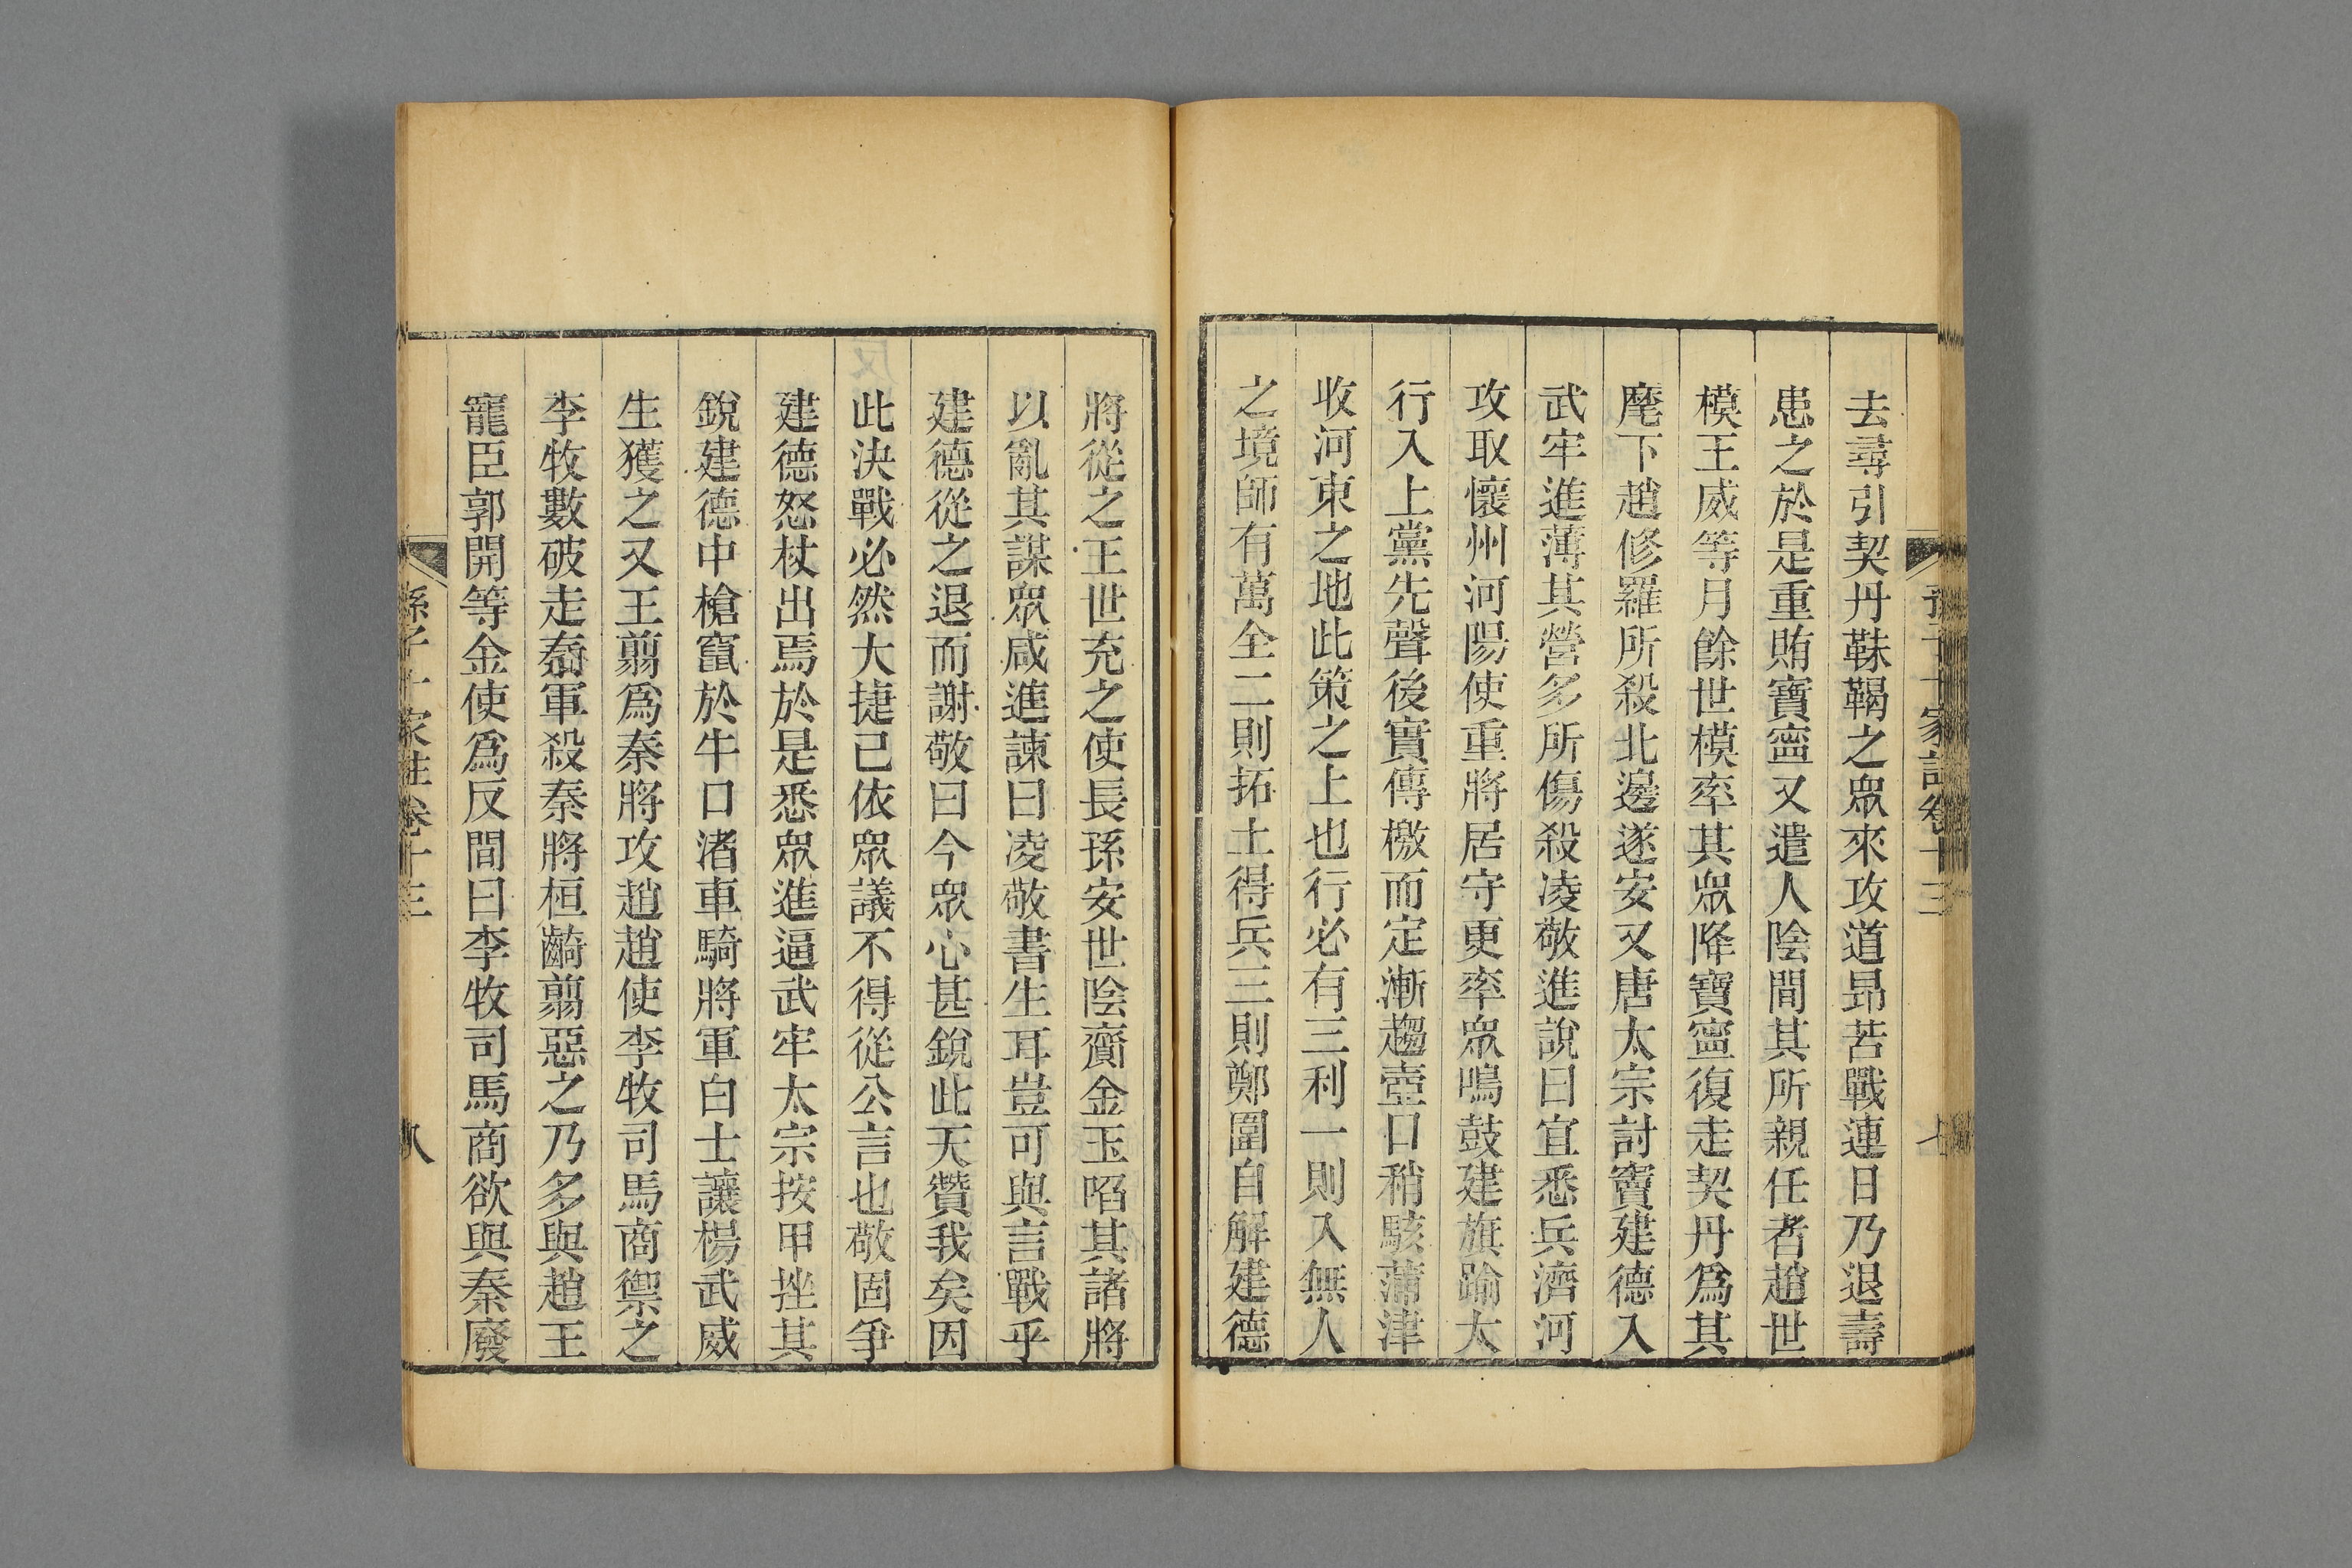 去尋引契丹靺鞨之眾來攻道昂苦戰連日乃退壽
患之於是重賄寶寧又遣人陰間其所親任者趙世
模王威等月餘世模率其眾降寶寧復走契丹爲其
麾下趙修羅所殺北邊遂安又唐太宗討竇建德入
武牢進薄其營多所傷殺凌敬進說曰宜悉兵濟河
攻取懷州河陽使重將居守更率眾鳴鼓建旗踰太
行入上黨先聲後實傳檄而定漸趨壺口稍駭蒲津
收河東之地此策之上也行必有三利一則入無人
之境師有萬全二則拓土得兵三則鄭圍自解建德
將從之王世充之使長孫安世陰齎金玉啗其諸將
以亂其謀眾咸進諫曰凌敬書生耳豈可與言戰乎
建德從之退而謝敬曰今眾心甚銳此天贊我矣因
此決戰必然大捷已依眾議不得從公言也敬固爭
建德怒杖出焉於是悉眾進逼武牢太宗按甲挫其
銳建德中槍竄於牛口渚車騎將軍白士讓楊武威
生獲之又王翦爲秦將攻趙趙使李牧司馬商禦之
李牧數破走秦軍殺秦將桓齮翦惡之乃多與趙王
寵臣郭開等金使爲反間曰李牧司馬商欲與秦廢
孫子十家註卷十三
八